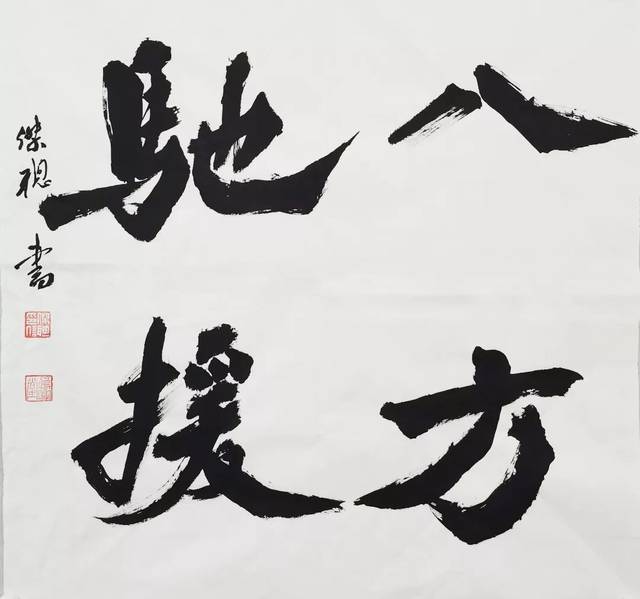 八方
馳援
傑聰書